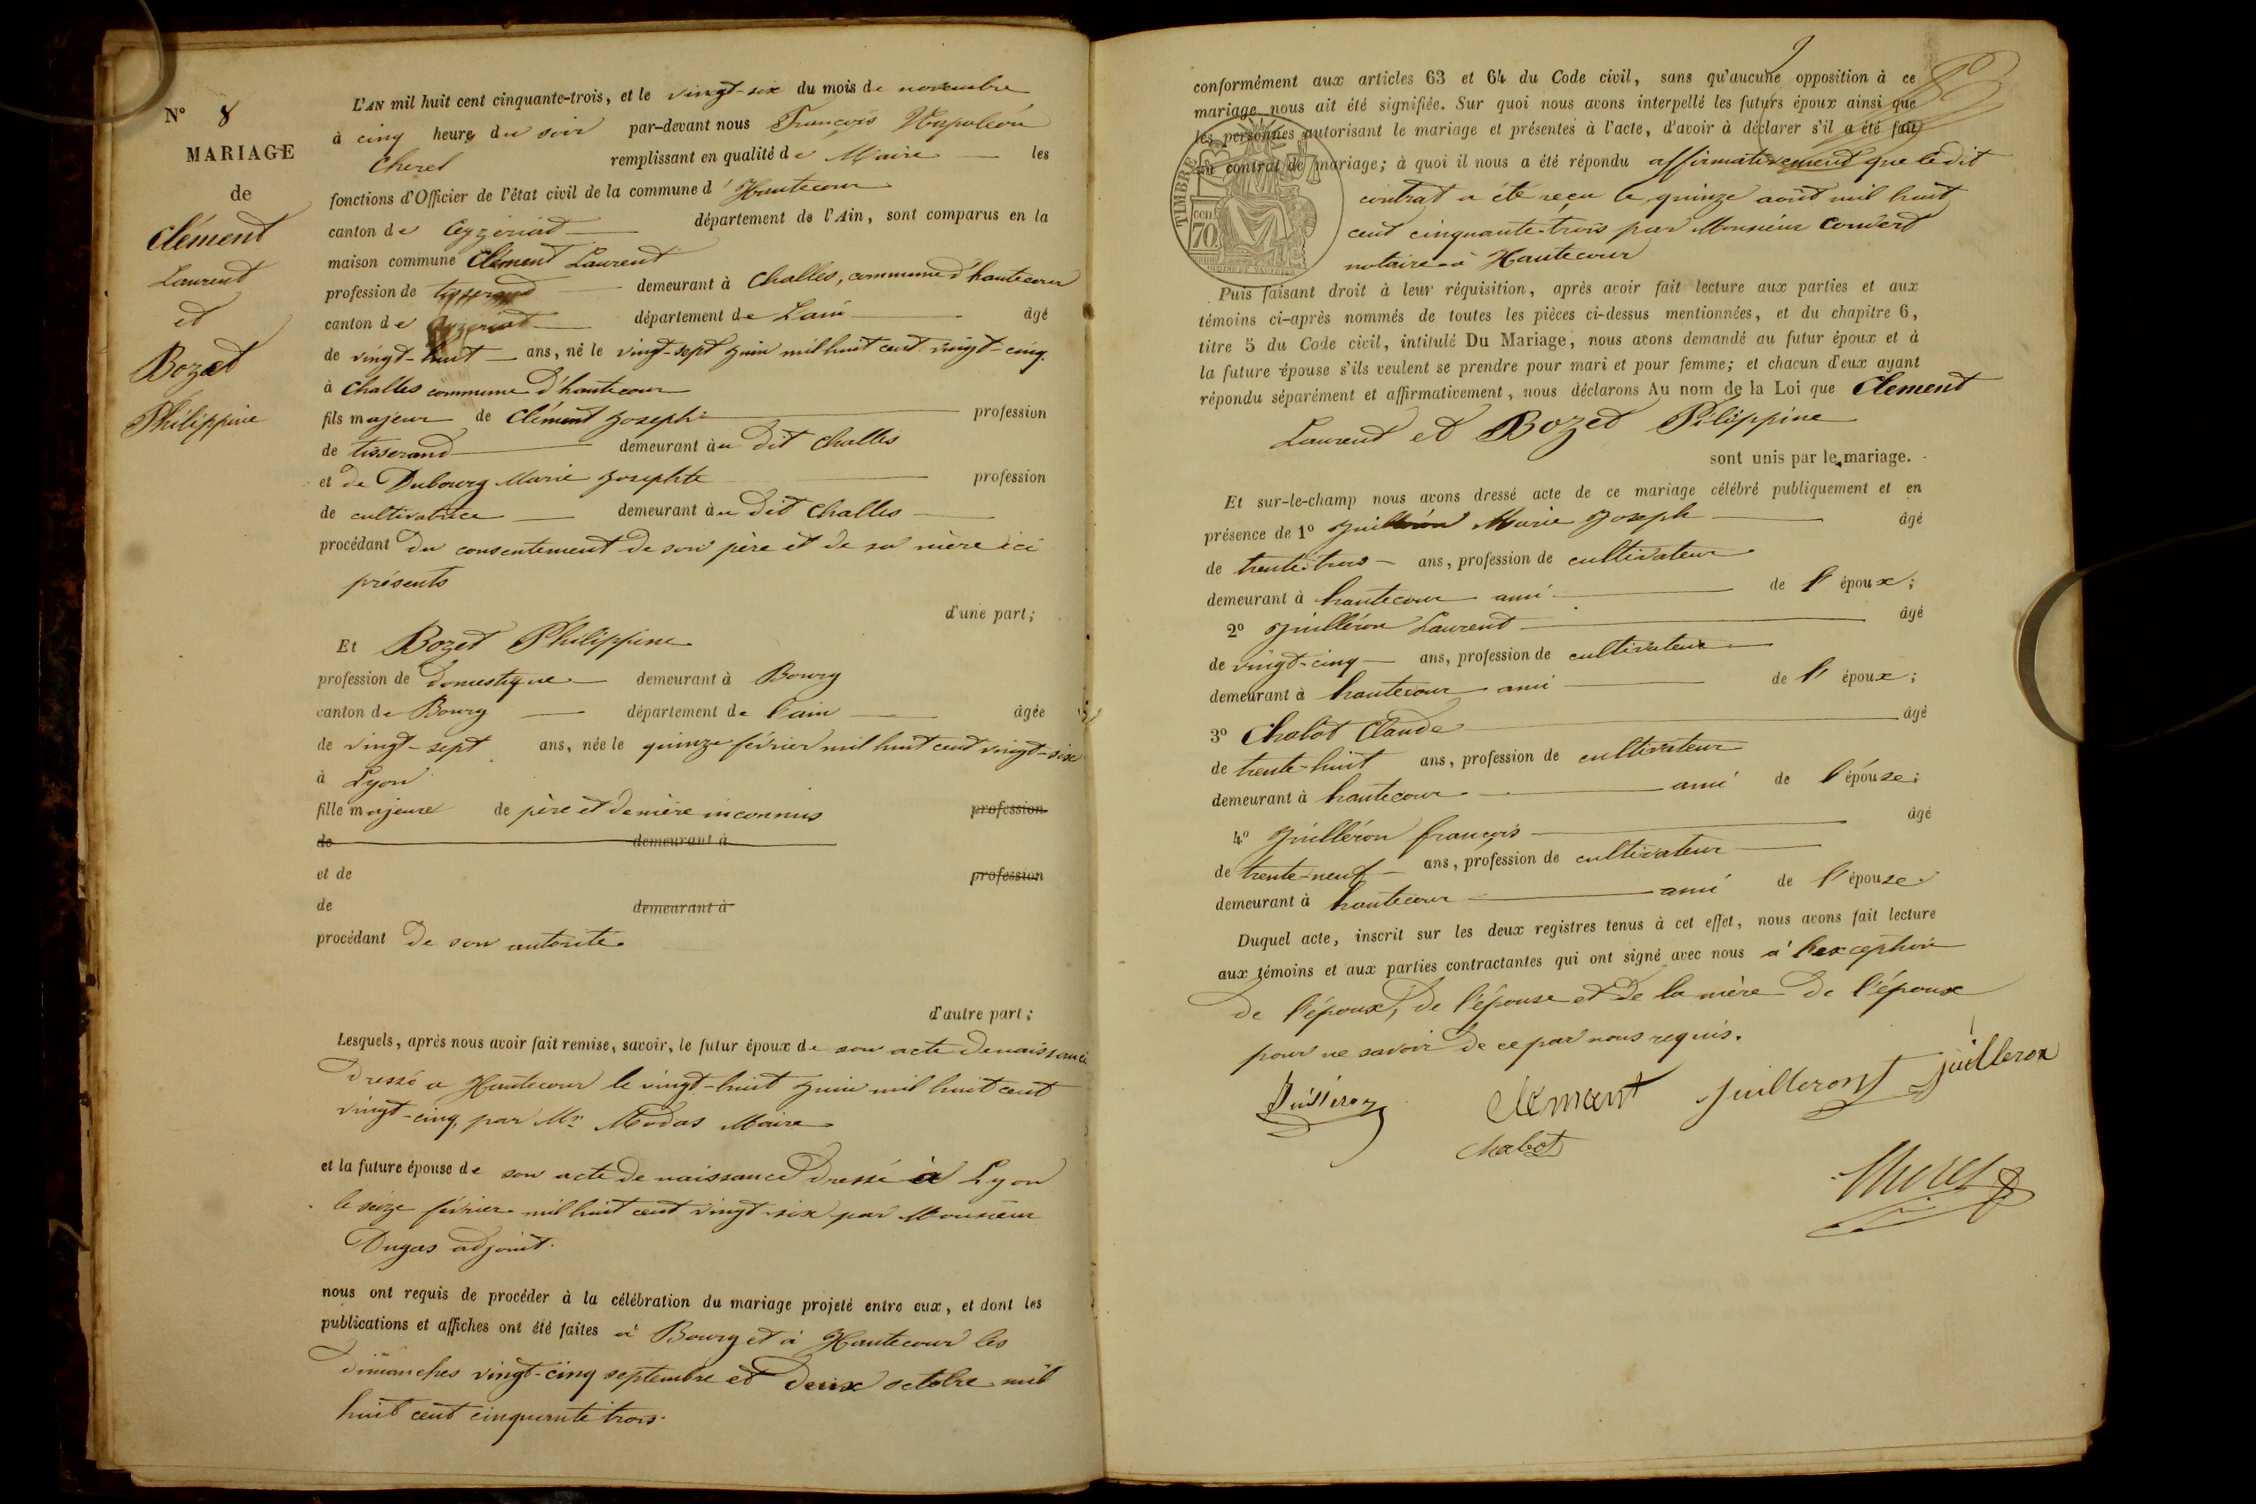 N° 8
MARIAGE
de
Clément
Laurent
et
Bozet
Philippine
L'AN mil huit cent cinquante-trois, et le vingt-six du mois de novembre
à cinq heures du soir par-devant nous François Napoléon
Cherel remplissant en qualité de Maire les
fonctions d'Officier de l'état civil de la commune d'Hautecour
canton de Ceyzériat département de l'Ain, sont comparus en la
maison commune Clément Laurent
profession de tisserand demeurant à Challes, commune d'hautecour
canton de Ceyzériat département de Lain âgé
de vingt-huit ans, né le vingt-sept juin mil huit cent vingt-cinq
à Challes commune d'hautecour
fils majeur de Clément Joseph profession
de tisserand demeurant au dit Challes
et de Dubourg Marie Josephte profession
de cultivatrice demeurant au dit Challes
procédant du consentement de son père et de sa mère ici
présents
d'une part;
Et Bozet Philippine
profession de domestique demeurant à Bourg
canton de Bourg département de l'ain âgée
de vingt-sept ans, née le quinze février mil huit cent vingt-six
à Lyon
fille majeure de père et de mère inconnus profession
de demeurant à
et de profession
de demeurant à
procédant de son autorité
d'autre part;
Lesquels, après nous avoir fait remise, savoir, le futur époux de son acte de naissance
dressé a Hautecour le vingt-huit juin mil huit cent
vingt-cinq, par Mr Maire
et la future épouse de son acte de naissance dressé à Lyon
le seize février mil huit cent vingt-six par Monsieur
Dugas adjoint.
nous ont requis de procéder à la célébration du mariage projeté entre eux, et dont les
publications et affiches ont été faites à Bourg et à Hautecour les
dimanches vingt-cinq septembre et deux octobre mil
huit cent cinquante trois.
conformément aux articles 63 et 64 du Code civil, sans qu'aucune opposition à ce
mariage nous ait été signifiée. Sur quoi nous avons interpellé les futurs époux ainsi que
les personnes autorisant le mariage et présentes à l'acte, d'avoir à déclarer s'il a été fait
un contrat de mariage; à quoi il nous a été répondu affirmativement que ledit
contrat a été reçu le quinze août mil huit
cent cinquante-trois par Monsieur Convert
notaire à Hautecour
TIMBRE
70
Puis faisant droit à leur réquisition, après avoir fait lecture aux parties et aux
témoins ci-après nommés de toutes les pièces ci-dessus mentionnées, et du chapitre 6,
titre 5 du Code civil, intitulé Du Mariage, nous avons demandé au futur époux et à
la future épouse s'ils veulent se prendre pour mari et pour femme; et chacun d'eux ayant
répondu séparément et affirmativement, nous déclarons Au nom de la Loi que Clement
Laurent et Bozet Pilippine
sont unis par le mariage.
Et sur-le-champ nous avons dressé acte de ce mariage célébré publiquement et en
présence de 1° Juilléron Marie Joseph âgé
de trente-trois ans, profession de cultivateur
demeurant à hautecour ami de l'époux;
2° Juilléron Laurent âgé
de vingt-cinq ans, profession de cultivateur
demeurant à hautecour ami de l'époux;
3° Chabot Claude âgé
de trente-huit ans, profession de cultivateur
demeurant à hautecour ami de l'épouse;
4° Juilléron françois âgé
de trente-neuf ans, profession de cultivateur
demeurant à hautecour ami de l'épouse
Duquel acte, inscrit sur les deux registres tenus à cet effet, nous avons fait lecture
aux témoins et aux parties contractantes qui ont signé avec nous à l'exception
de l'époux, de l'épouse et de la mère de l'époux
pour ne savoir de ce par nous requis.
Clemant Juilleront juilleron
Chabot
Cherel